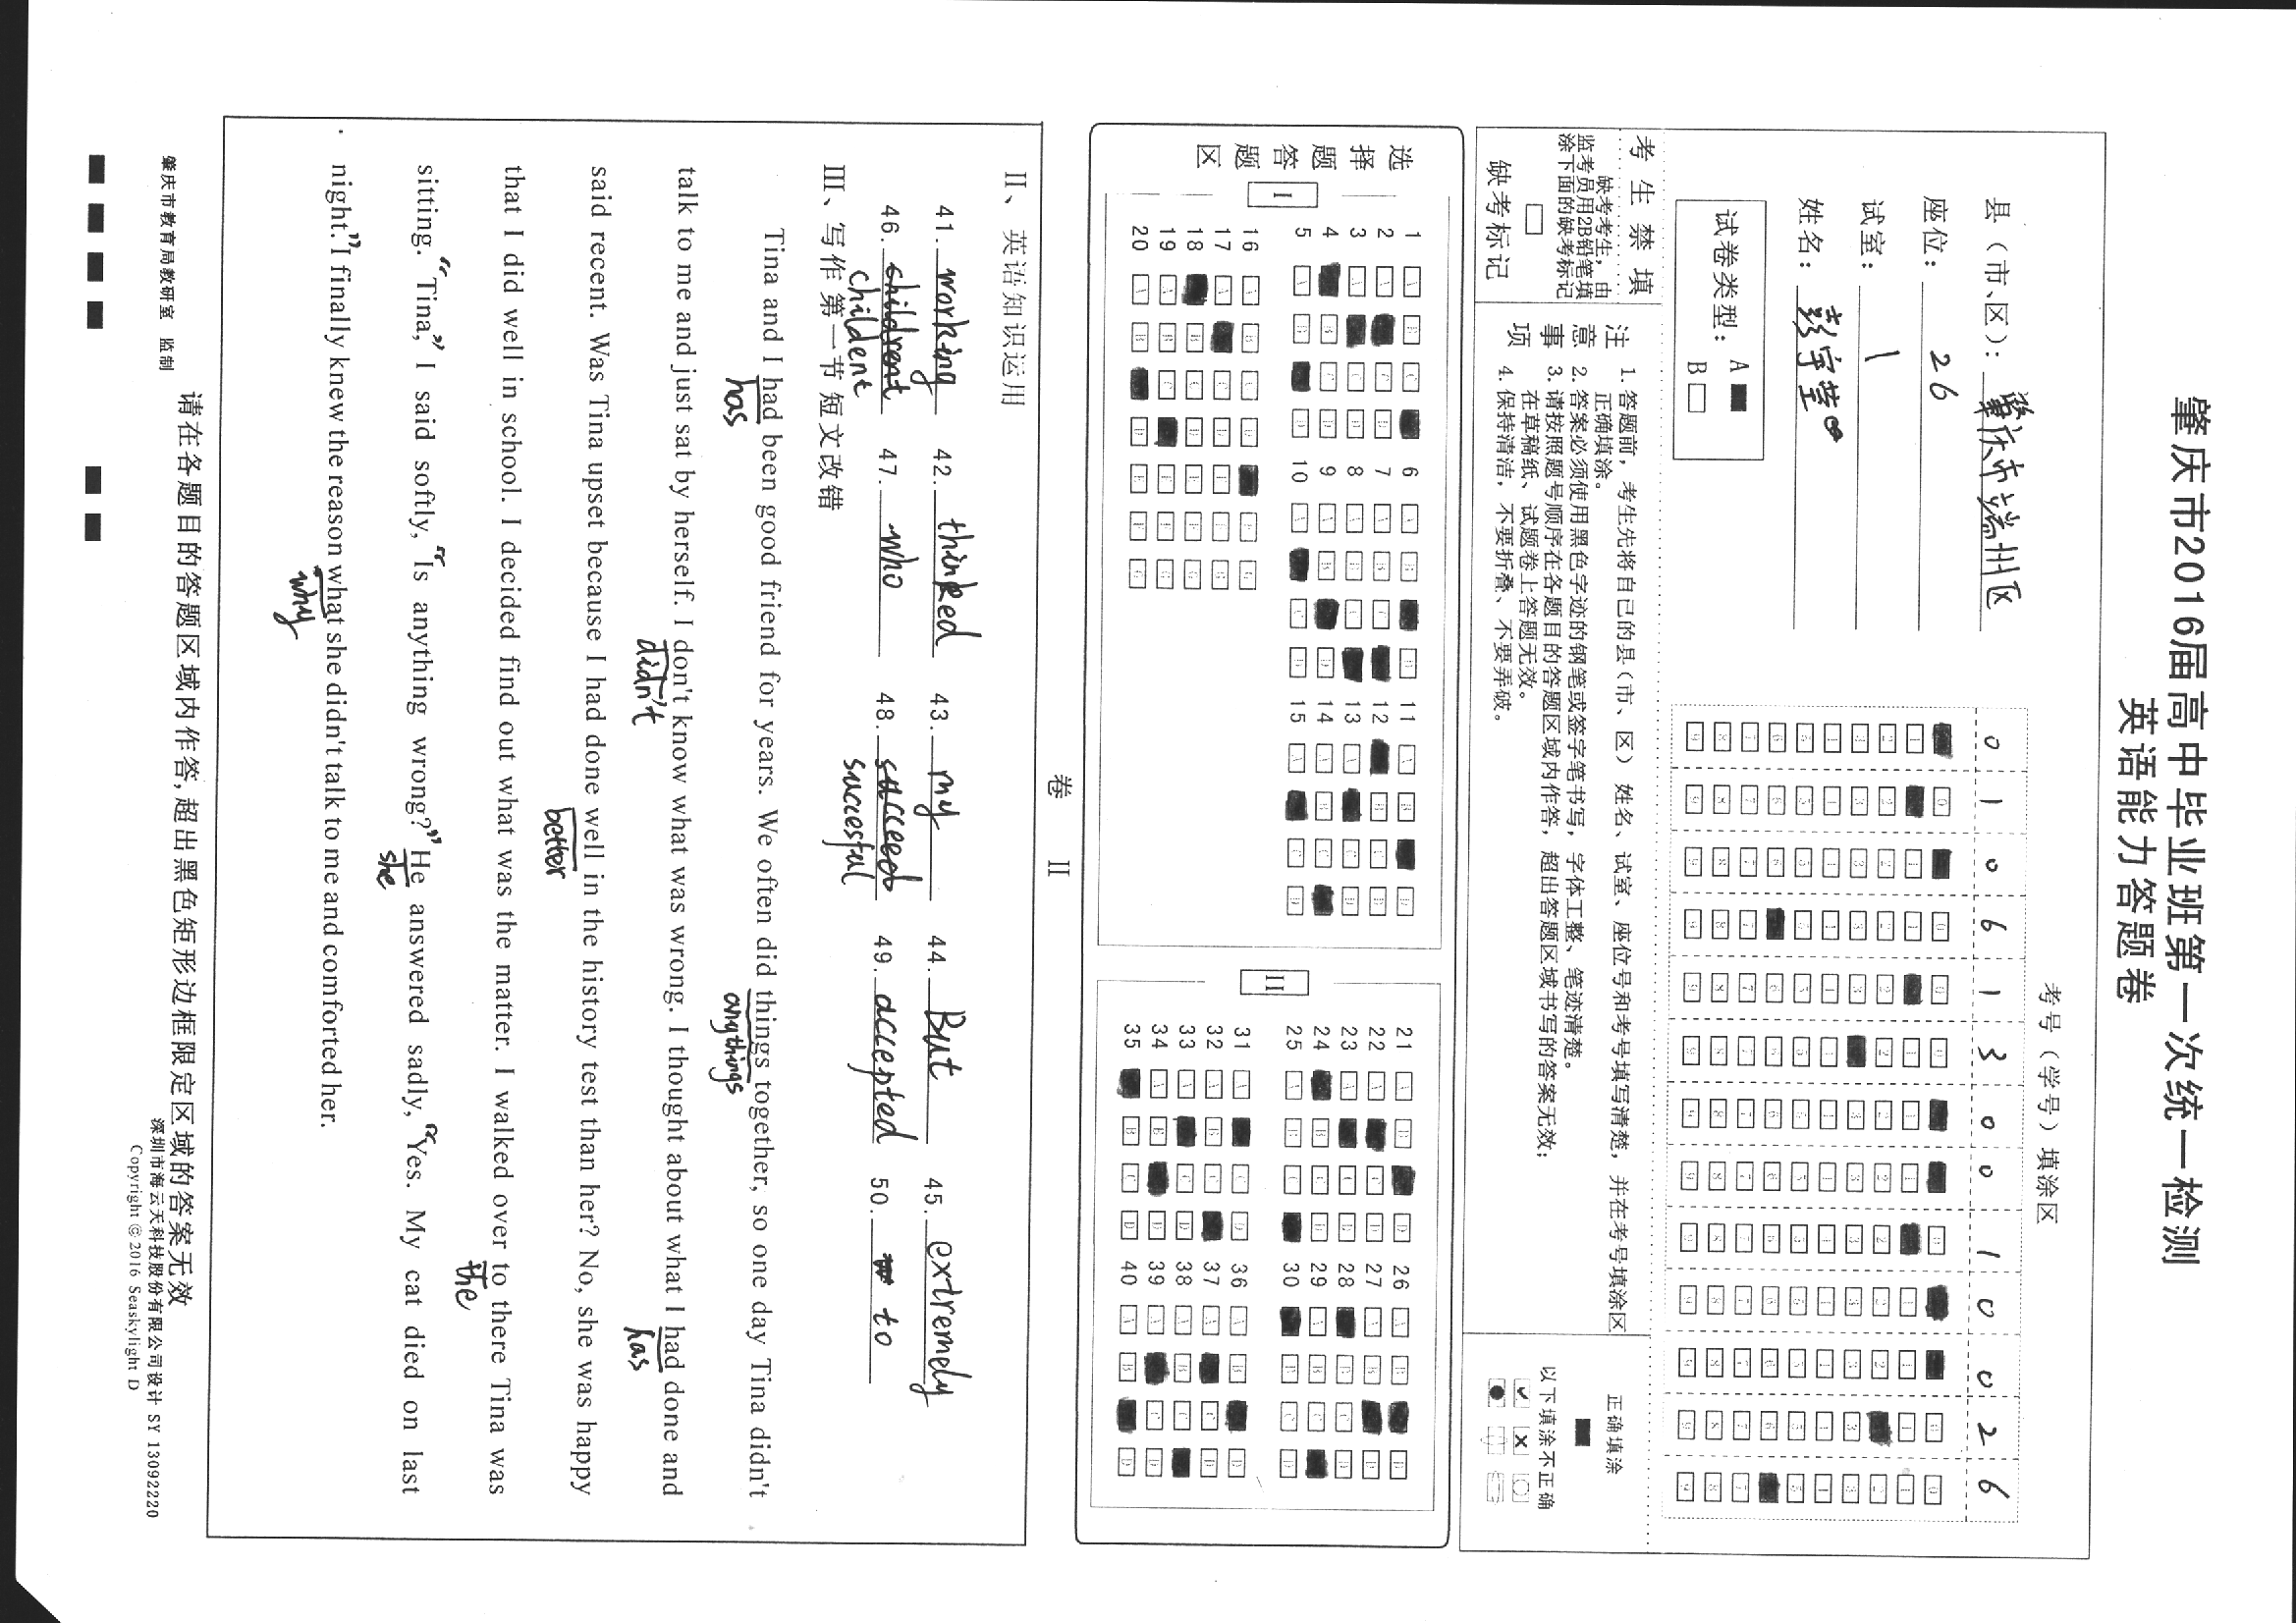 肇庆市2016届高中毕业班第一次统一检测
英语能力答题卷
县（市、区）：肇庆市端州区
座位：26
试室：1
姓名：彭宇莹
试卷类型：A
B
考号（学号）填涂区
0 1 0 6 1 3 0 0 1 0 0 2 6
考生禁填
缺考考生，由
监考员用2B铅笔填
涂下面的缺考标记
缺考标记
注意事项
1. 答题前，考生先将自己的县（市、区）姓名、试室、座位号和考号填写清楚，并在考号填涂区
正确填涂。
2. 答案必须使用黑色字迹的钢笔或签字笔书写，字体工整、笔迹清楚。
3. 请按照题号顺序在各题目的答题区域内作答，超出答题区域书写的答案无效；
在草稿纸、试题卷上答题无效。
4. 保持清洁，不要折叠、不要弄破。
正确填涂
以下填涂不正确
选择题答题区
I
1 6 11
2 7 12
3 8 13
4 9 14
5 10 15
16
17
18
19
20
II
21 26
22 27
23 28
24 29
25 30
31 36
32 37
33 38
34 39
35 40
卷 II
II、英语知识运用
41. working 42. thinked 43. my 44. But 45. extremely
46. childrent 47. who 48. succeed 49. accepted 50. to
childent succesful
III、写作第一节 短文改错
Tina and I had been good friend for years. We often did things together, so one day Tina didn't
has anythings
talk to me and just sat by herself. I don't know what was wrong. I thought about what I had done and
didn't has
said recent. Was Tina upset because I had done well in the history test than her? No, she was happy
better
that I did well in school. I decided find out what was the matter. I walked over to there Tina was
the
sitting. "Tina," I said softly, "Is anything wrong?" He answered sadly, "Yes. My cat died on last
she
night." I finally knew the reason what she didn't talk to me and comforted her.
why
请在各题目的答题区域内作答，超出黑色矩形边框限定区域的答案无效
肇庆市教育局教研室 监制
深圳市海云天科技股份有限公司设计 SY 13092220
Copyright © 2016 Seaskylight D